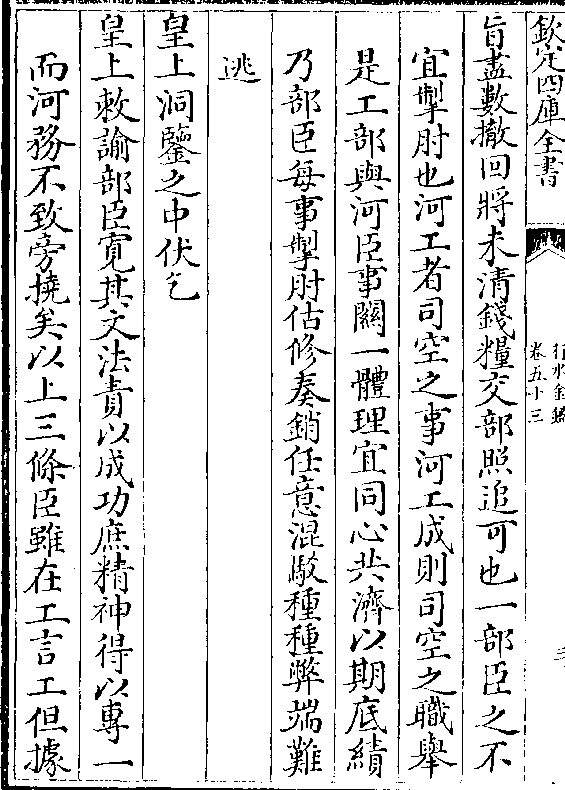 欽定四庫全書
行水金鑑
卷五十三
旨盡數撤回將未清錢糧交部照追可也一部臣之不
宜掣肘也河工者司空之事河工成則司空之職舉
是工部與河臣事關一體理宜同心共濟以期底績
乃部臣每事掣肘估修奏銷任意混駮種種弊端難
逃
皇上洞鑒之中伏乞
皇上敕諭部臣寬其文法責以成功庶精神得以專一
而河務不致旁撓矣以上三條臣雖在工言工但據